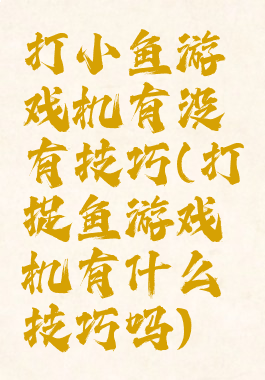 打小鱼游
戏机有没
有技巧(打
捉鱼游戏
机有什么
技巧吗)